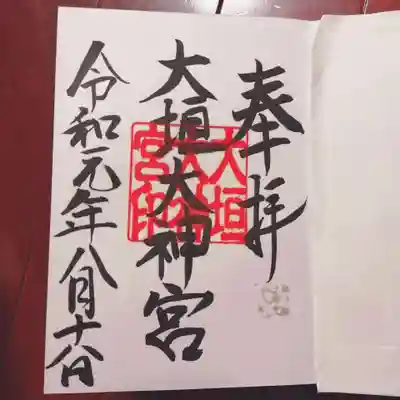 奉拝
大垣大神宮
令和元年八月十八日
大垣
大神
宮印